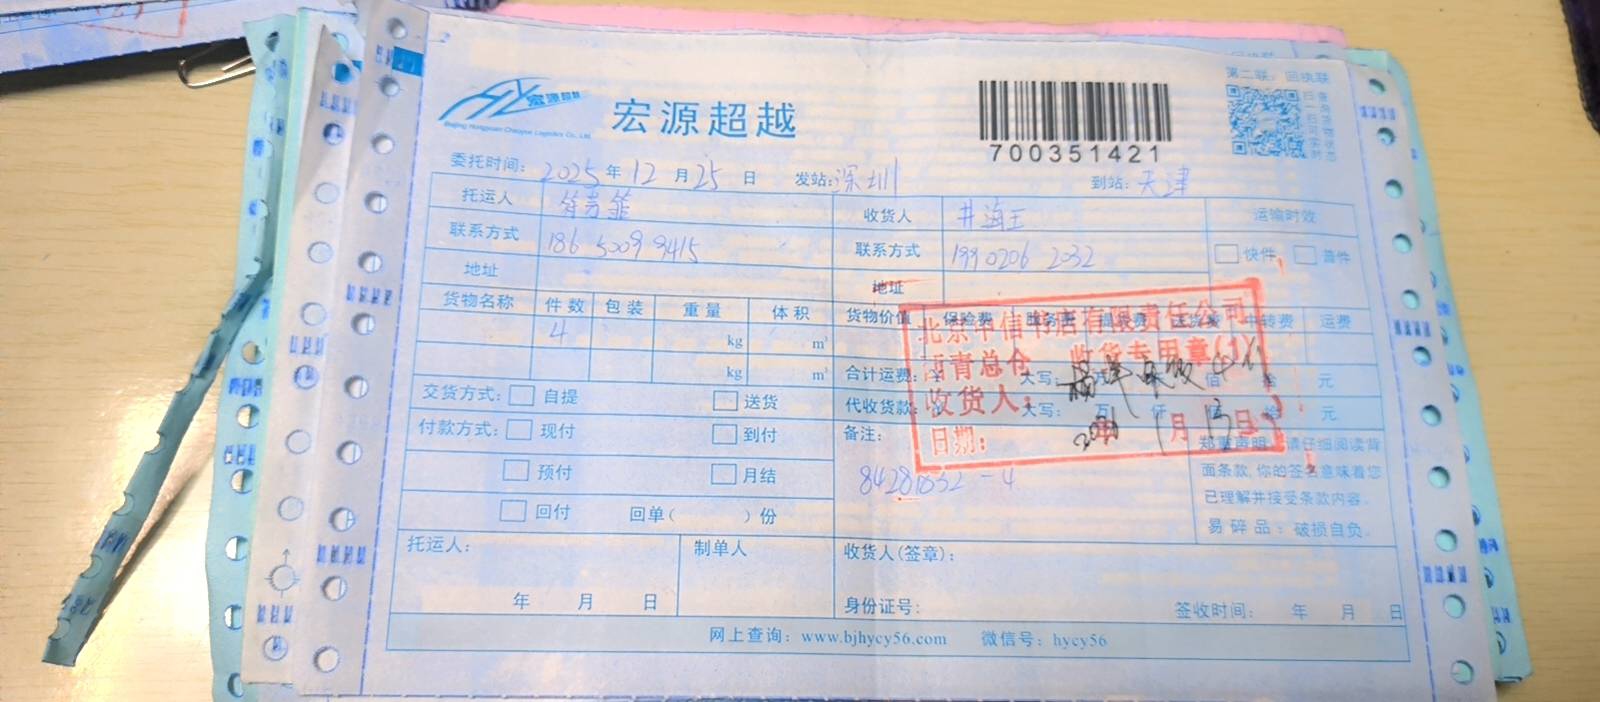 第二联：回执联
宏源超越
Beijing Hongyuan Chaoyue Logistics Co., Ltd.
宏源超越
700351421
委托时间：2025年12月25日 发站：深圳 到站：天津
托运人 收货人 井海王 运输时效
联系方式 186 5009 9415 联系方式 199 0206 2032 快件 普件
地址 地址
货物名称 件数 包装 重量 体积 货物价值 保险费 中转费 运费
4 kg m³
kg m³
合计运费： 大写： 万 佰 拾 元
代收货款： 大写： 万 仟 佰 拾 元
交货方式： 自提 送货
付款方式： 现付 到付
预付 月结
回付 回单（ ）份
备注：
84281632-4
北京中信书店有限责任公司
西青总仓 收货专用章(1)
收货人：
日期： 1月13日
郑重声明：请仔细阅读背
面条款，你的签名意味着您
已理解并接受条款内容。
易碎品：破损自负。
托运人： 制单人 收货人(签章)：
年 月 日 身份证号： 签收时间： 年 月 日
网上查询：www.bjhycy56.com 微信号：hycy56